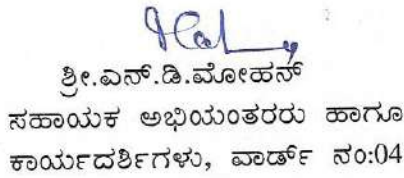 ಶ್ರೀ.ಎನ್.ಡಿ.ಮೋಹನ್
ಸಹಾಯಕ ಅಭಿಯಂತರರು ಹಾಗೂ
ಕಾರ್ಯದರ್ಶಿಗಳು, ವಾರ್ಡ್ ನಂ:04